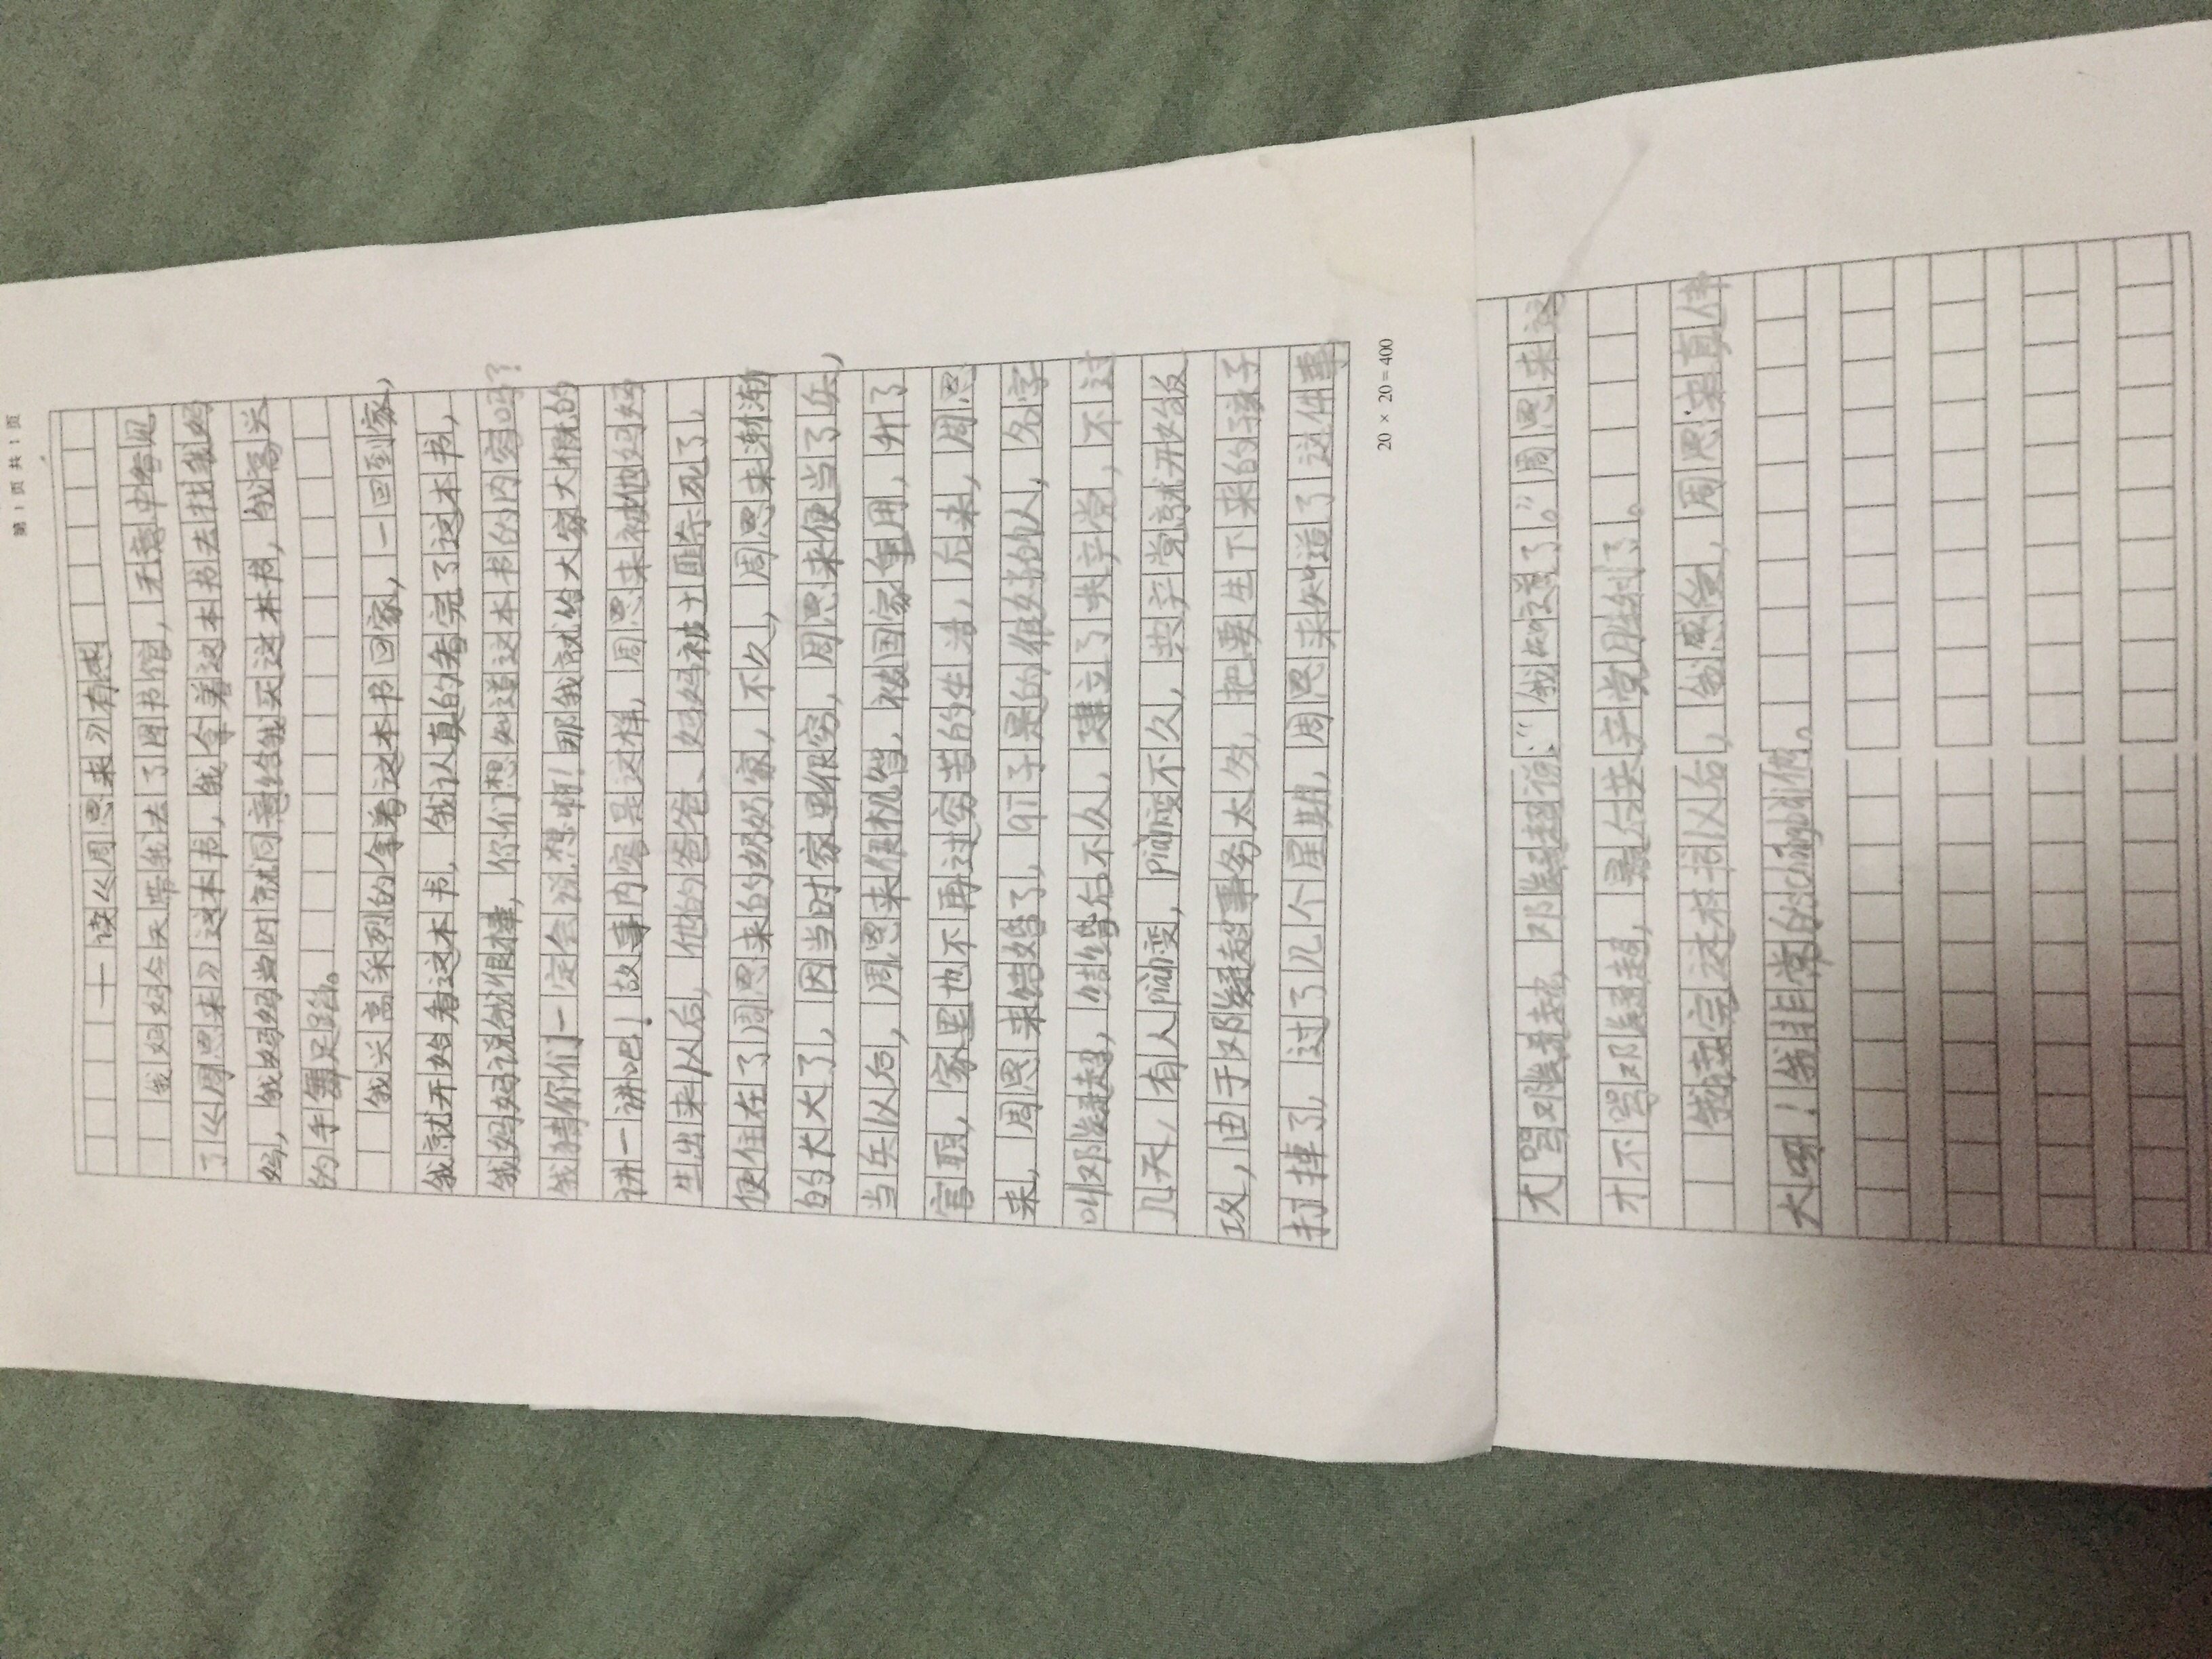 第 1 页 共 1 页
十 读《周恩来》有感
我妈妈今天带我去了图书馆，无意中看见
了《周恩来》这本书，我拿着这本书去找我妈
妈，我妈妈当时就同意给我买这本书，我高兴
的手舞足蹈。
我兴高采烈的拿着这本书回家，一回到家，
我就开始看这本书，我认真的看完了这本书，
我妈妈说我很棒，你们想知道这本书的内容吗？
我猜你们一定会说想啊！那我就给大家大概的
讲一讲吧！故事内容是这样，周恩来被他妈妈
生出来以后，他的爸爸、妈妈被土匪杀死了，
便住在了周恩来的奶奶家，不久，周恩来渐渐
的大大了，因当时家里很穷，周恩来便当了兵，
当兵以后，周恩来很机智，被国家重用，升了
官职，家里也不再过穷苦的生活，后来，周恩
来，周恩来结婚了，qī子是的很好的人，名字
叫邓疑超，结婚后不久，建立了共产党，不过
几天，有人piàn变，piàn变不久，共产党就开始反
攻，由于邓疑超事务太多，把要生下来的孩子
打掉了，过了几个星期，周恩来知道了这件事，
20 × 20 = 400
大骂邓疑超，邓疑超说：“我知道了。”周恩来这
才不骂邓疑超，最后共产党胜利了。
我读完这本书以后，我感受，周恩来真伟
大呀！我非常的chóng bài他。